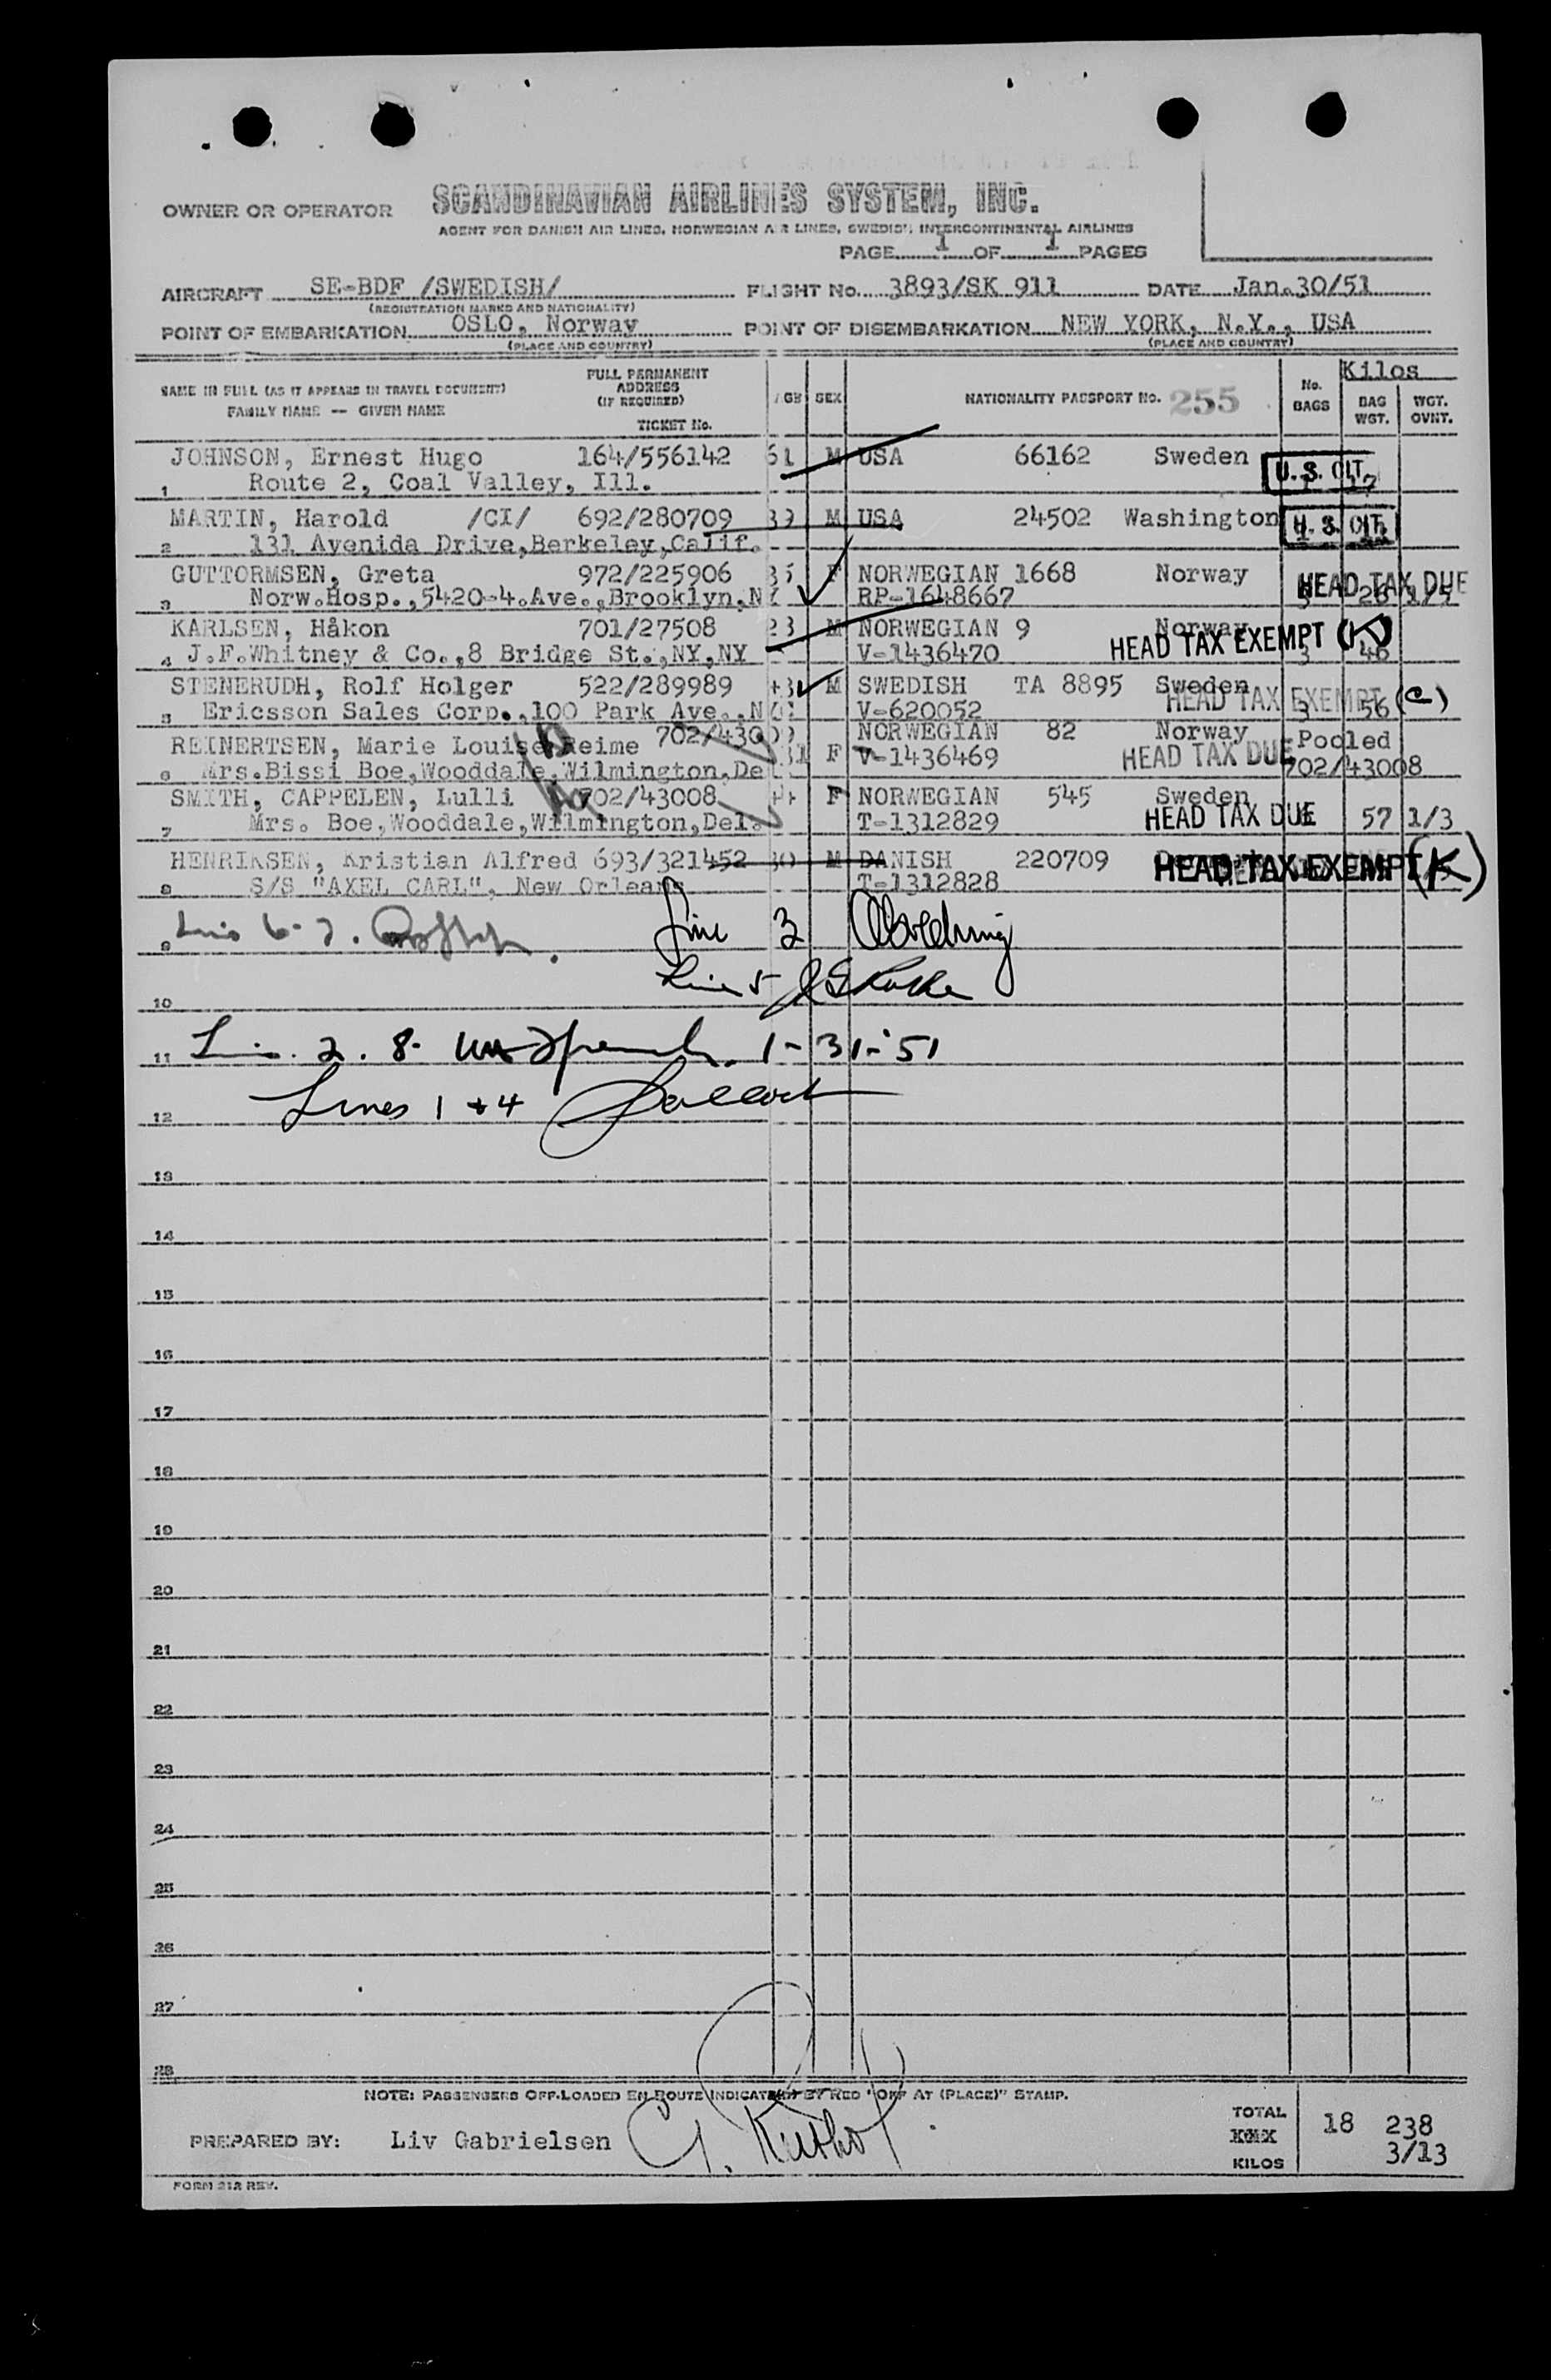 OWNER OR OPERATOR SCANDINAVIAN AIRLINES SYSTEM, INC.
AGENT FOR DANISH AIR LINES, NORWEGIAN AIR LINES, SWEDISH INTERCONTINENTAL AIRLINES
PAGE 1 OF 1 PAGES
AIRCRAFT SE-BDF /SWEDISH/ FLIGHT No. 3893/SK 911 DATE Jan.30/51
(REGISTRATION MARKS AND NATIONALITY)
POINT OF EMBARKATION OSLO, Norway POINT OF DISEMBARKATION NEW YORK, N.Y., USA
(PLACE AND COUNTRY) (PLACE AND COUNTRY)
NAME IN FULL (AS IT APPEARS IN TRAVEL DOCUMENT)
FAMILY NAME -- GIVEN NAME
FULL PERMANENT
ADDRESS
(IF REQUIRED)
TICKET No.
AGE SEX NATIONALITY PASSPORT No. 255 No. BAGS Kilos BAG WGT. WGT. OVWT.
JOHNSON, Ernest Hugo 164/556142 61 M USA 66162 Sweden U.S. CIT.
1 Route 2, Coal Valley, Ill.
MARTIN, Harold /CI/ 692/280709 39 M USA 24502 Washington U.S. CIT.
2 131 Avenida Drive,Berkeley,Calif.
GUTTORMSEN, Greta 972/225906 35 F NORWEGIAN 1668 Norway HEAD TAX DUE
3 Norw.Hosp.,5420-4.Ave.,Brooklyn,NY RP-1648667
KARLSEN, Håkon 701/27508 23 M NORWEGIAN 9 Norway HEAD TAX EXEMPT (K)
4 J.F.Whitney & Co.,8 Bridge St.,NY,NY V-1436470 3 46
STENERUDH, Rolf Holger 522/289989 43 M SWEDISH TA 8895 Sweden HEAD TAX EXEMPT (C)
5 Ericsson Sales Corp.,100 Park Ave., V-620052 3 56
REINERTSEN, Marie Louise Reime 702/43009 31 F NORWEGIAN 82 Norway Pooled
V-1436469 HEAD TAX DUE
6 Mrs.Bissi Boe,Wooddale,Wilmington,De 702/43008
SMITH, CAPPELEN, Lulli 702/43008 44 F NORWEGIAN 545 Sweden
7 Mrs. Boe,Wooddale,Wilmington,Del. T-1312829 HEAD TAX DUE 57 1/3
HENRIKSEN, Kristian Alfred 693/321452 30 M DANISH 220709 HEAD TAX EXEMPT (K)
8 S/S "AXEL CARL", New Orleans T-1312828
9 Line 3
Line 5
10
11 2. 8. 1-31-'51
Lines 1 + 4
12
13
14
15
16
17
18
19
20
21
22
23
24
25
26
27
28
NOTE: PASSENGERS OFF-LOADED EN ROUTE INDICATED BY RED "OFF AT (PLACE)" STAMP.
PREPARED BY: Liv Gabrielsen TOTAL KILOS 18 238
3/13
FORM 212 REV.